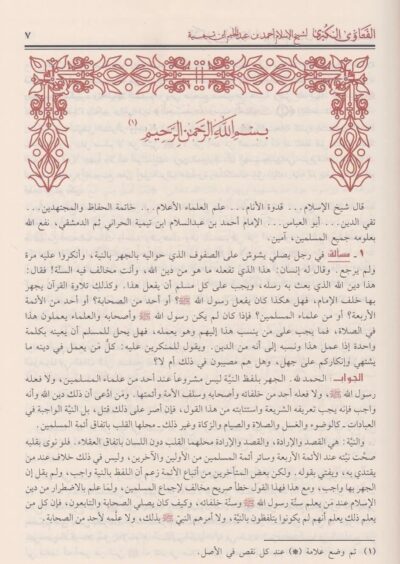 الفتاوى الكبرى لشيخ الإسلام أحمد بن عبد الحليم ابن تيمية ٧
بسم الله الرحمن الرحيم (١)
قال شيخ الإسلام... قدوة الأنام... علم العلماء الأعلام... خاتمة الحفاظ والمجتهدين...
تقي الدين... أبو العباس... الإمام أحمد بن عبدالسلام ابن تيمية الحراني ثم الدمشقي، نفع الله
بعلومه جميع المسلمين، آمين.
١ ـ مسألة: في رجل يصلي يشوش على الصفوف الذي حواليه بالجهر بالنية، وأنكروا عليه مرة
ولم يرجع. وقال له إنسان: هذا الذي تفعله ما هو من دين الله، وأنت مخالف فيه السنة! فقال:
هذا دين الله الذي بعث به رسله، ويجب على كل مسلم أن يفعل هذا. وكذلك تلاوة القرآن يجهر
بها خلف الإمام، فهل هكذا كان يفعل رسول الله ﷺ؟ أو أحد من الصحابة؟ أو أحد من الأئمة
الأربعة؟ أو من علماء المسلمين؟ فإذا كان لم يكن رسول الله ﷺ وأصحابه والعلماء يعملون هذا
في الصلاة، فما يجب على من ينسب هذا إليهم وهو يعمله، فهل يحل للمسلم أن يعينه بكلمة
واحدة إذا عمل هذا ونسبه إلى أنه من الدين. ويقول للمنكرين عليه: كلٌّ من يعمل في دينه ما
يشتهي وإنكاركم على جهل، وهل هم مصيبون في ذلك أم لا؟
الجواب: الحمد لله. الجهر بلفظ النيَّة ليس مشروعاً عند أحد من علماء المسلمين، ولا فعله
رسول الله ﷺ، ولا فعله أحد من خلفائه وأصحابه وسلف الأمة وأئمتها. ومن ادَّعى أن ذلك دين الله وأنه
واجب فإنه يجب تعريفه الشريعة واستتابته من هذا القول، فإن أصر على ذلك قتل، بل النيَّة الواجبة في
العبادات ـ كالوضوء والغسل والصلاة والصيام والزكاة وغير ذلك ـ محلها القلب باتفاق أئمة المسلمين.
والنيَّة: هي القصد والإرادة، والقصد والإرادة محلهما القلب دون اللسان باتفاق العقلاء. فلو نوى بقلبه
صحَّت نيَّته عند الأئمة الأربعة وسائر أئمة المسلمين من الأولين والآخرين، وليس في ذلك خلاف عند من
يقتدى به، ويفتى بقوله. ولكن بعض المتأخرين من أتباع الأئمة زعم أن اللفظ بالنية واجب، ولم يقل إن
الجهر بها واجب، ومع هذا فهذا القول خطأ صريح مخالف لإجماع المسلمين، ولما علم بالاضطرار من دين
الإسلام عند من يعلم سنَّة رسول الله ﷺ وسنَّة خلفائه، وكيف كان يصلي الصحابة والتابعون، فإن كل من
يعلم ذلك يعلم أنهم لم يكونوا يتلفظون بالنيَّة، ولا أمرهم النبيّ ﷺ بذلك، ولا علَّمه لأحد من الصحابة.
(١) تم وضع علامة (*) عند كل نقص في الأصل.